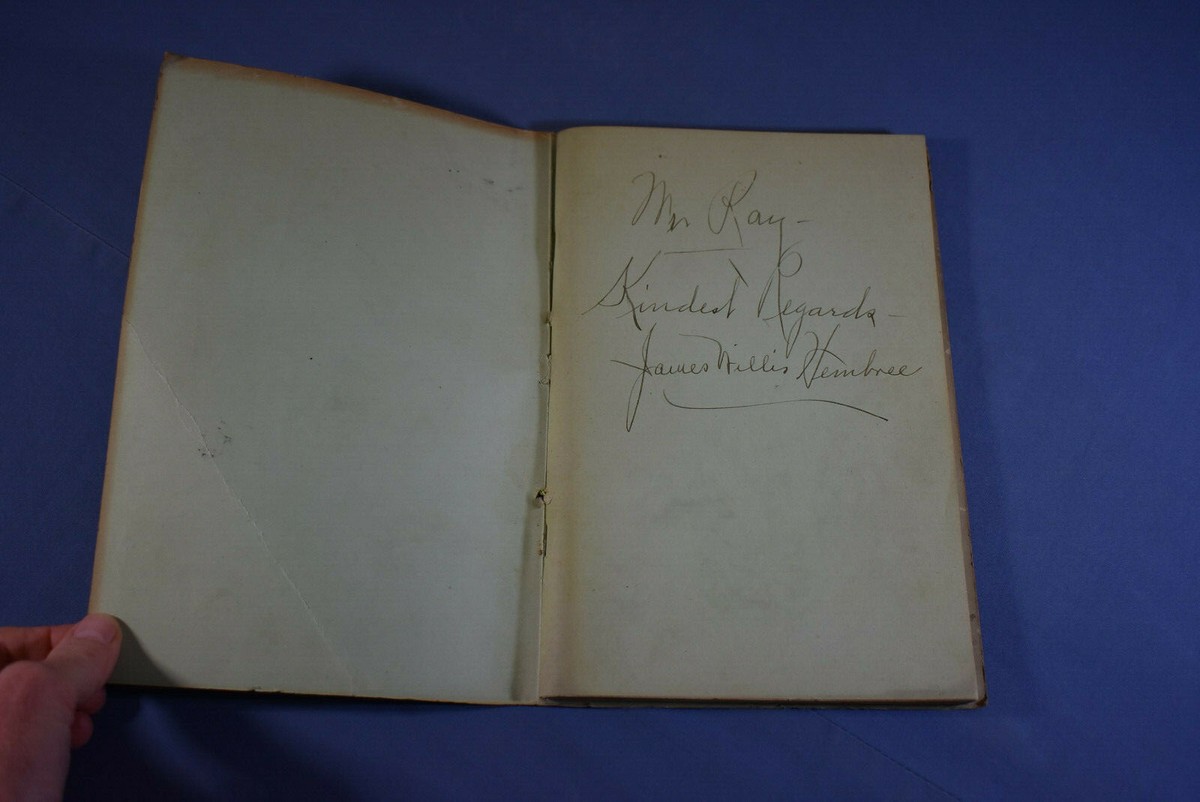 Mr Ray -
Kindest Regards -
James Willis Hembree